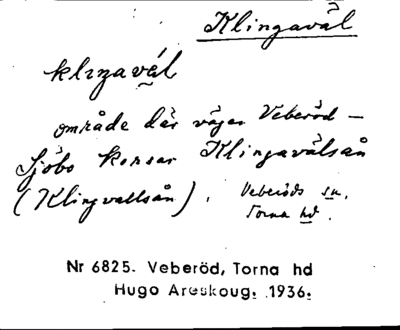 Klingaväl
klıŋavɛ́l
område där vägen Veberöd –
Sjöbo korsar Klingavälsån
(Klingvallsån). Veberöds sn,
Torna hd.
Nr 6825. Veberöd, Torna hd
Hugo Areskoug. 1936.